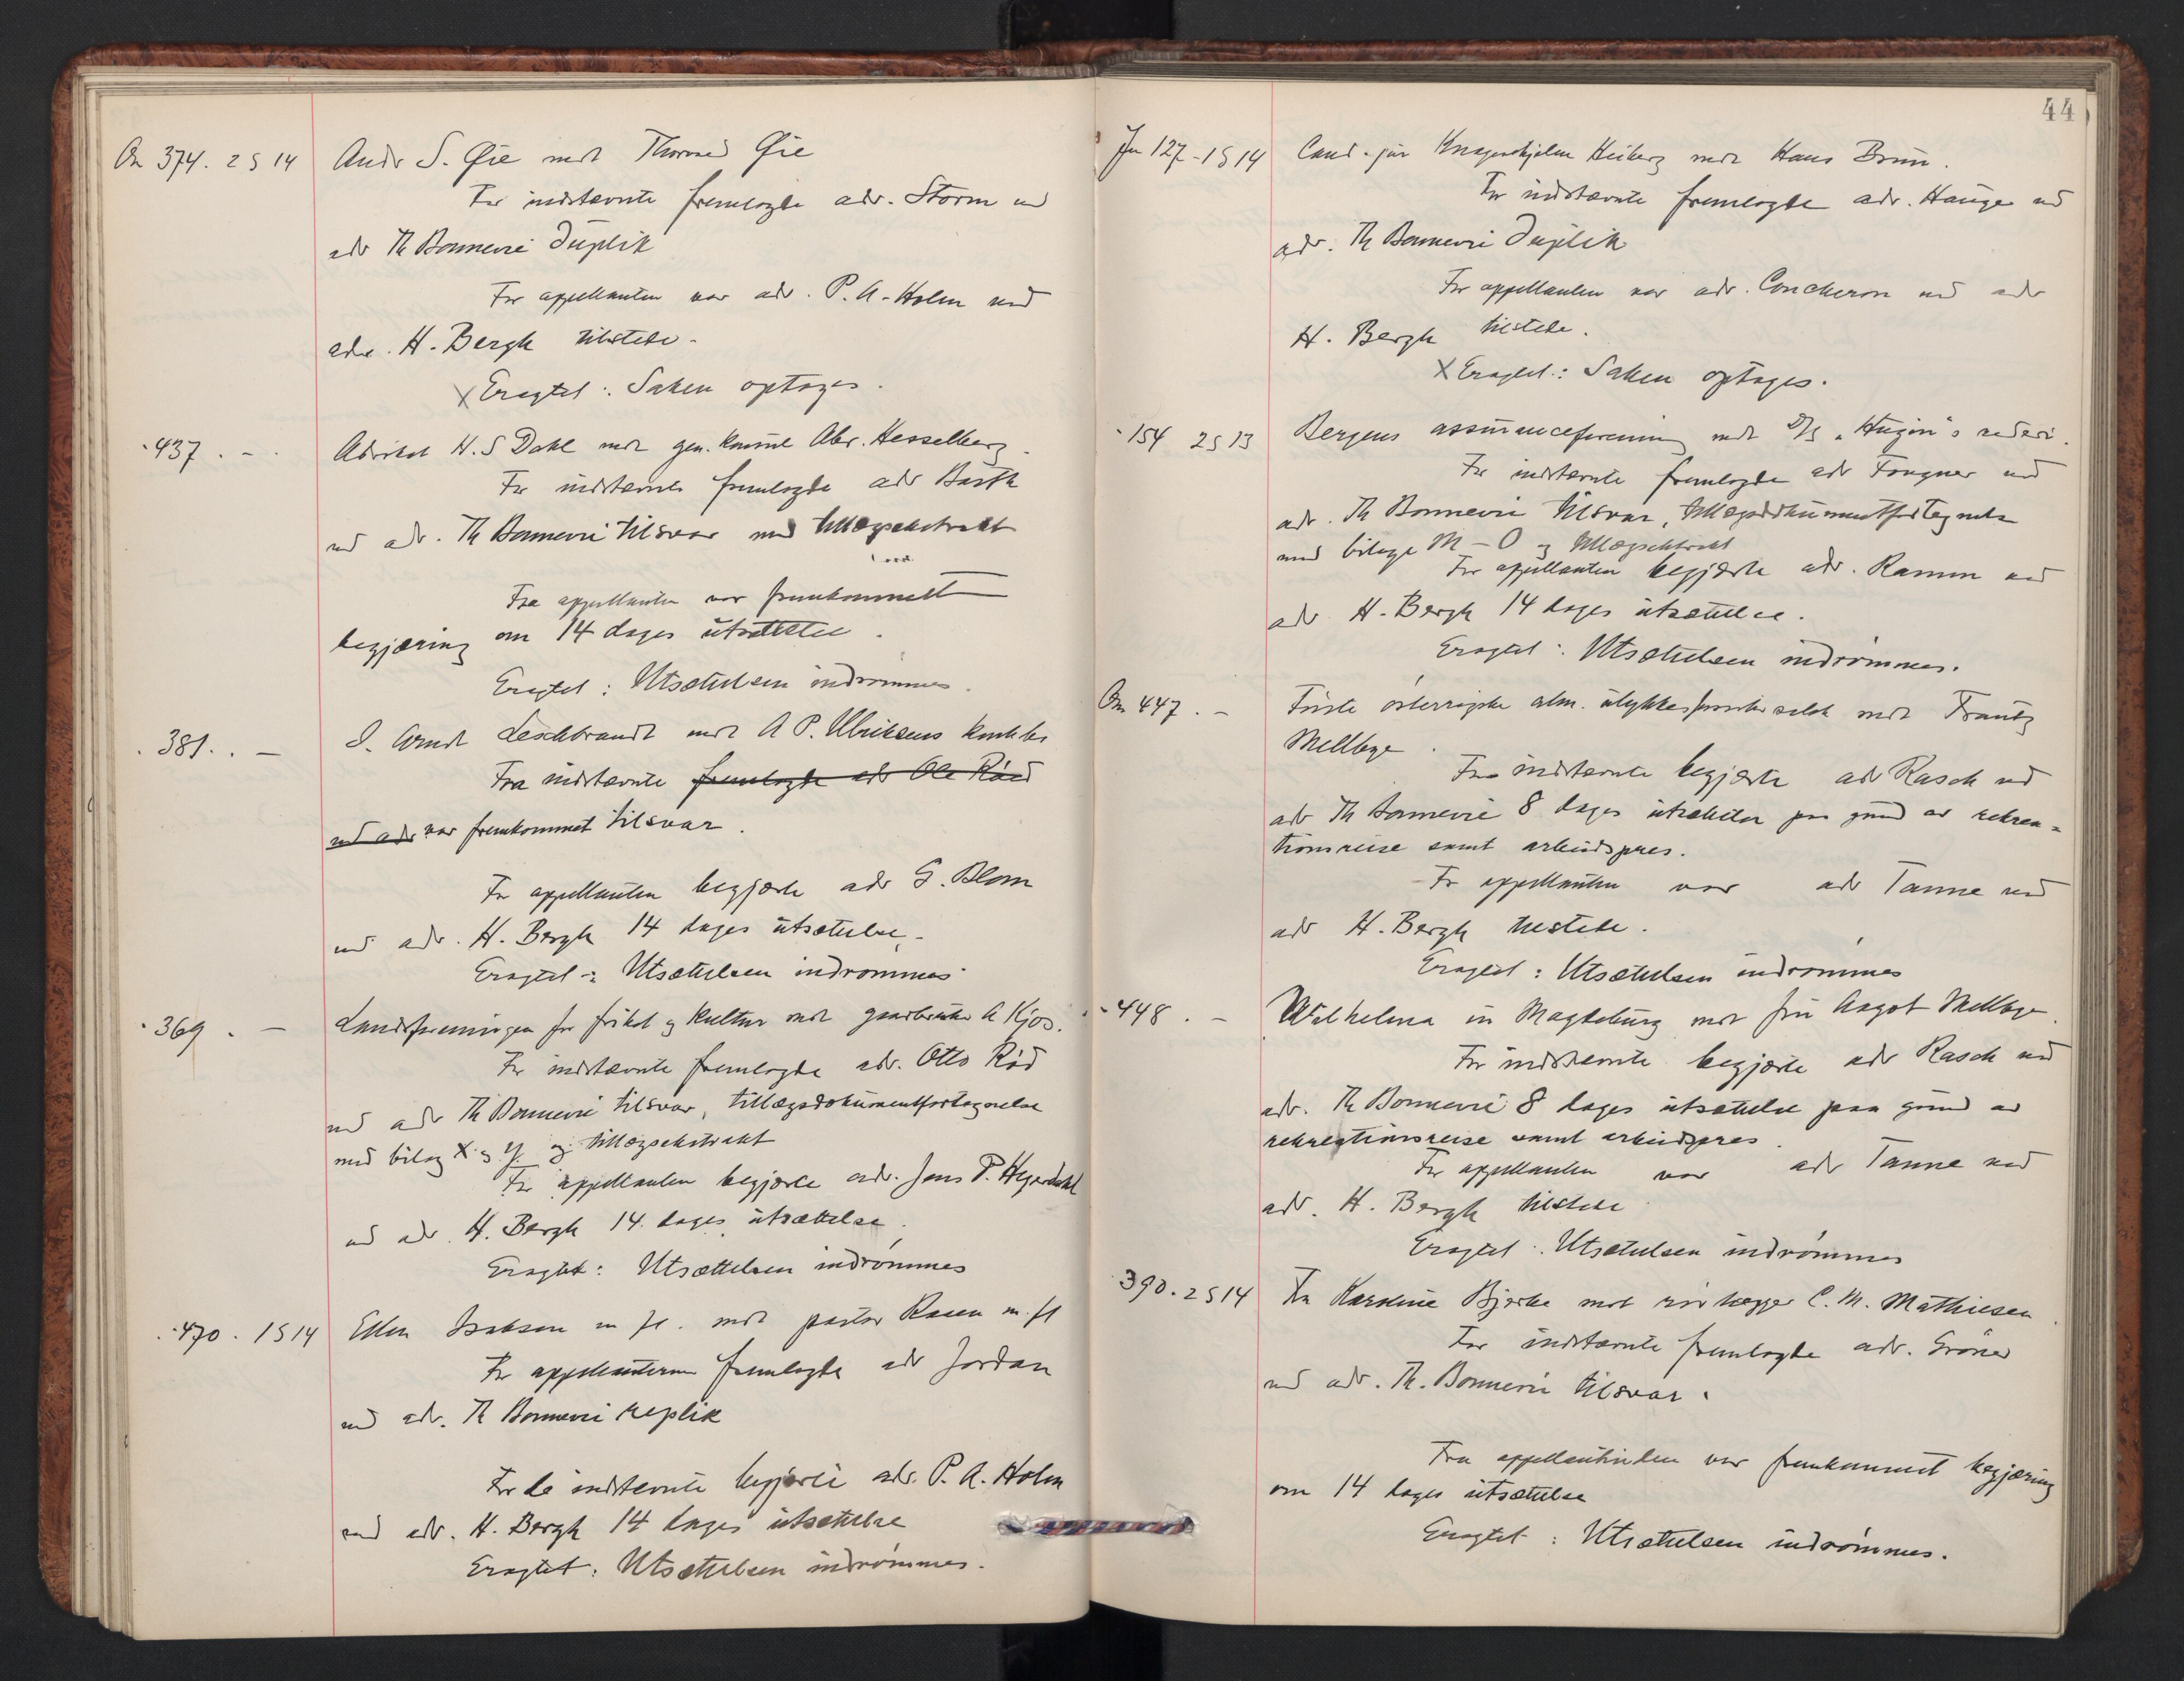 On 374. 2 S 14 Andr S. Øie mot Thorvald Øie
For indstævnte fremlagde adv. Storm ved
adv Th Bonnevie Duplik
For appellanten var adv. P. A. Holm ved
adv. H. Bergh tilstede.
X Eragtet: Saken optages.
" 437. - Advokat H. S Dahl mot gen. konsul Abr. Hesselberg.
For indstævnte fremlagde adv Barth
ved adv. Th Bonnevie tilsvar med tillægsekstrakt
Fra appellanten var fremkommet
begjæring om 14 dages utsættelse.
Eragtet: Utsættelsen indrømmes.
" 381. - Arndt Leschbrandt mot A P. Ulriksens
Fra indstævnte fremlagde adv Ole Röed
ved adv var fremkommet tilsvar.
For appellanten begjærte adv G. Blom
ved adv. H. Bergh 14 dages utsættelse.
Eragtet: Utsættelsen indrømmes
" 369. - Landsforeningen for frihet og kultur mot gaardbruker A Kjos.
For indstævnte fremlagde adv. Otto Röd
ved adv Th Bonnevie tilsvar, tillægsdokumentfortegnelse
med bilag X og Y. og tillægsekstrakt
For appellanten begjærte adv. Jens P. Heyerdahl
ved adv. H. Bergh 14. dages utsættelse.
Eragtet: Utsættelsen indrømmes
" 470. 1 S 14 Ellen Isaksen m fl. mot pastor m. fl
For appellanterne fremlagde adv Jordan
ved adv. Th Bonnevie replik
For de indstævnte begjærte adv. P. A. Holm
ved adv. H. Bergh 14 dages utsættelse
Eragtet: Utsættelsen indrømmes.
44
Jn 127 - 1 S 14 Cand. jur Knagenhjelm Heiberg mot Hans Brun.
For indstævnte fremlagde adv. Hauge ved
adv. Th Bonnevie Duplik
For appellanten var adv. Coucheron ved adv
H. Bergh tilstede.
X Eragtet: Saken optages.
" 154 2 S 13 Bergens assuranceforening mot D/S "Hugin"s rederi.
For indstævnte fremlagde adv Fougner ved
adv. Th Bonnevie tilsvar, tillægsdokumentfortegnelse
med bilage M - O og tillægsekstrakt
For appellanten begjærte adv. Ramm ved
adv H. Bergh 14 dages utsættelse.
Eragtet: Utsættelsen indrømmes.
On 447. - Første østerrigske alm. ulykkesforsikr selsk mot Frantz
Mellbye.
For indstævnte begjærte adv Rasch ved
adv Th Bonnevie 8 dages utsættelse paa grund av rekrea=
tionsreise samt arbeidspres.
For appellanten var adv Tanne ved
adv H. Bergh tilstede.
Eragtet: Utsættelsen indrømmes
" 448. - Wilhelma in Magdeburg mot fru Aagot Mellbye.
For indstævnte begjærte adv Rasch ved
adv. Th Bonnevie 8 dages utsættelse paa grund av
rekreationsreise samt arbeidspres.
For appellanten var adv Tanne ved
adv. H. Bergh tilstede
Eragtet: Utsættelsen indrømmes
390. 2 S 14 Fru Karoline Bjerke mot rørlægger C. M. Mathiesen.
For indstævnte fremlagde adv. Gröner
ved adv. Th. Bonnevie tilsvar.
Fra appellantinden var fremkommet begjæring
om 14 dages utsættelse
Eragtet: Utsættelsen indrømmes.